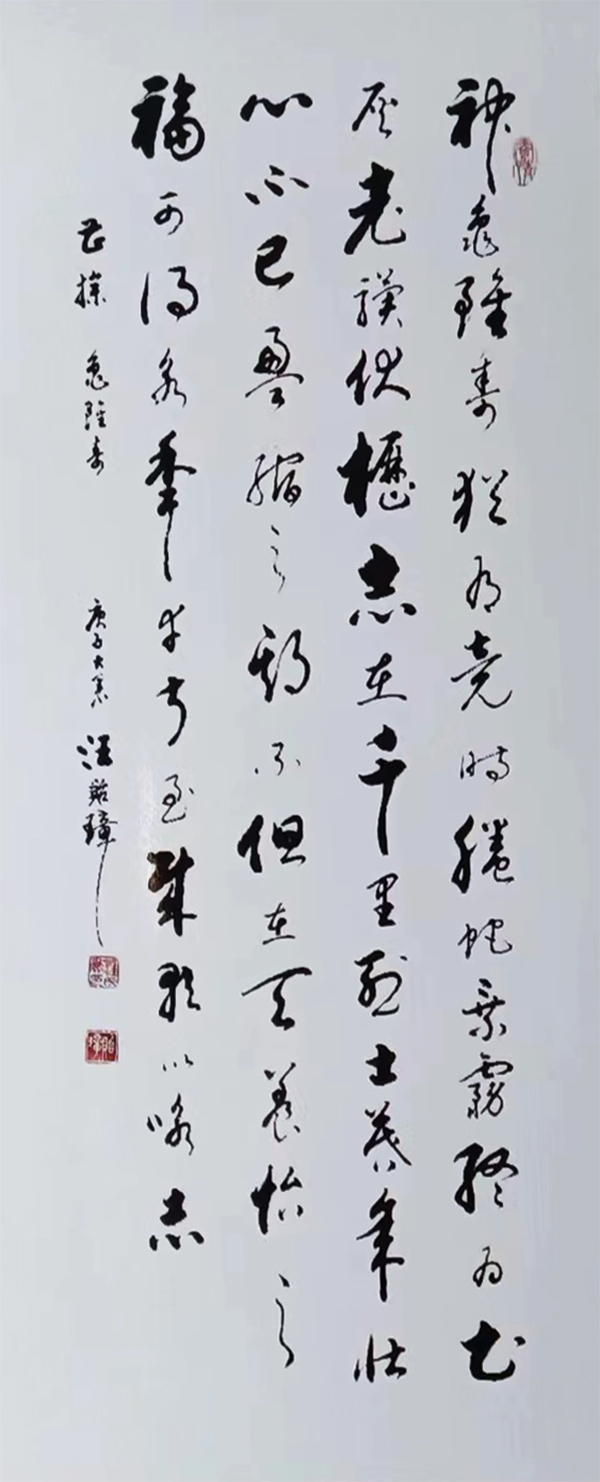 神龜雖壽猶有竟時騰蛇乘霧終為土
灰老驥伏櫪志在千里烈士暮年壯
心不已盈縮之期不但在天養怡之
福可得永年幸甚至哉歌以詠志
曹操 龜雖壽 庚子大 汪貽璋